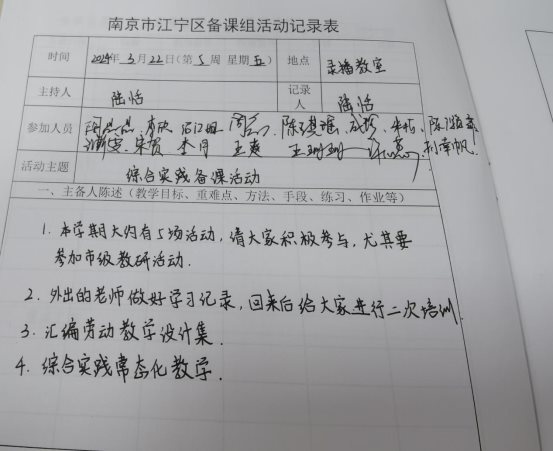 南京市江宁区备课组活动记录表
时间 2024年 3月 22日(第 5 周 星期 五) 地点 录播教室
主持人 陆恬 记录人 陆恬
参加人员
宋贺 李丹 王爽
活动主题 综合实践备课活动
一、主备人陈述(教学目标、重难点、方法、手段、练习、作业等)
1. 本学期大内有5场活动,请大家积极参与,尤其要
参加市级教研活动.
2. 外出的老师做好学习记录,回来后给大家进行二次培训.
3. 汇编劳动教学设计集.
4. 综合实践常态化教学.